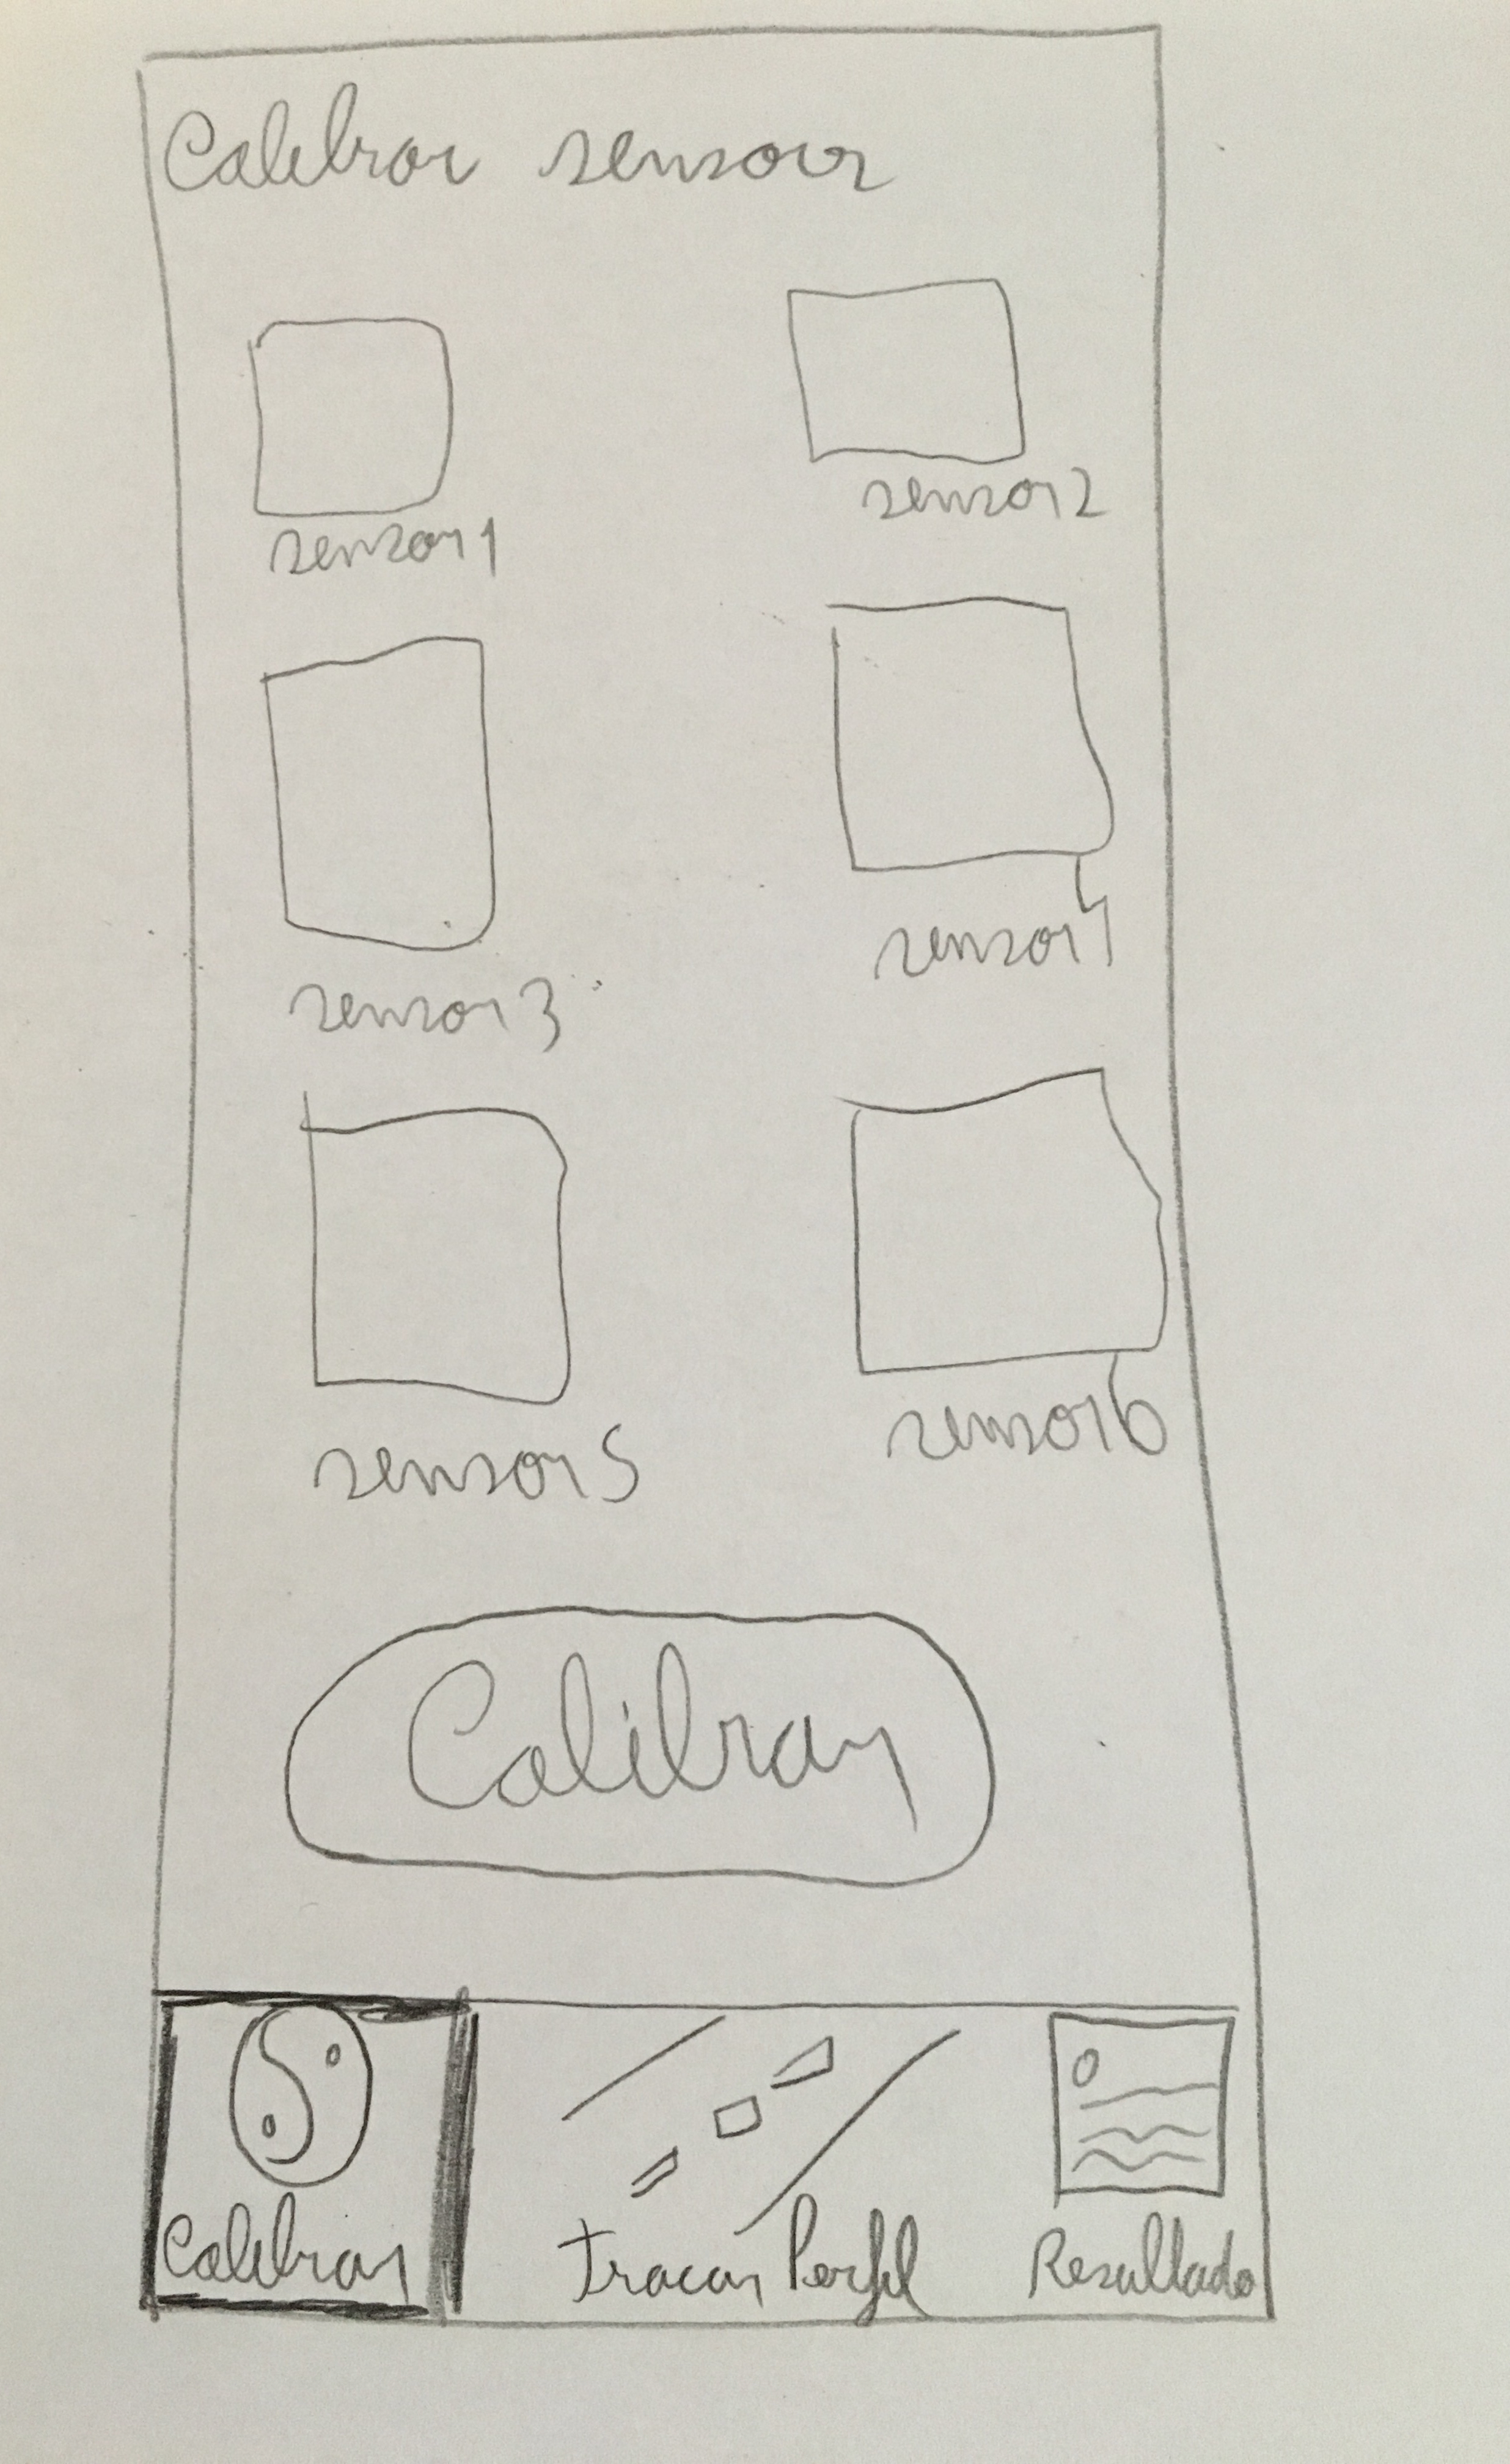 Calibrar sensor
sensor1
sensor2
sensor3
sensor4
sensor5
sensor6
Calibrar
Calibrar
Tracar Perfil
Resultado